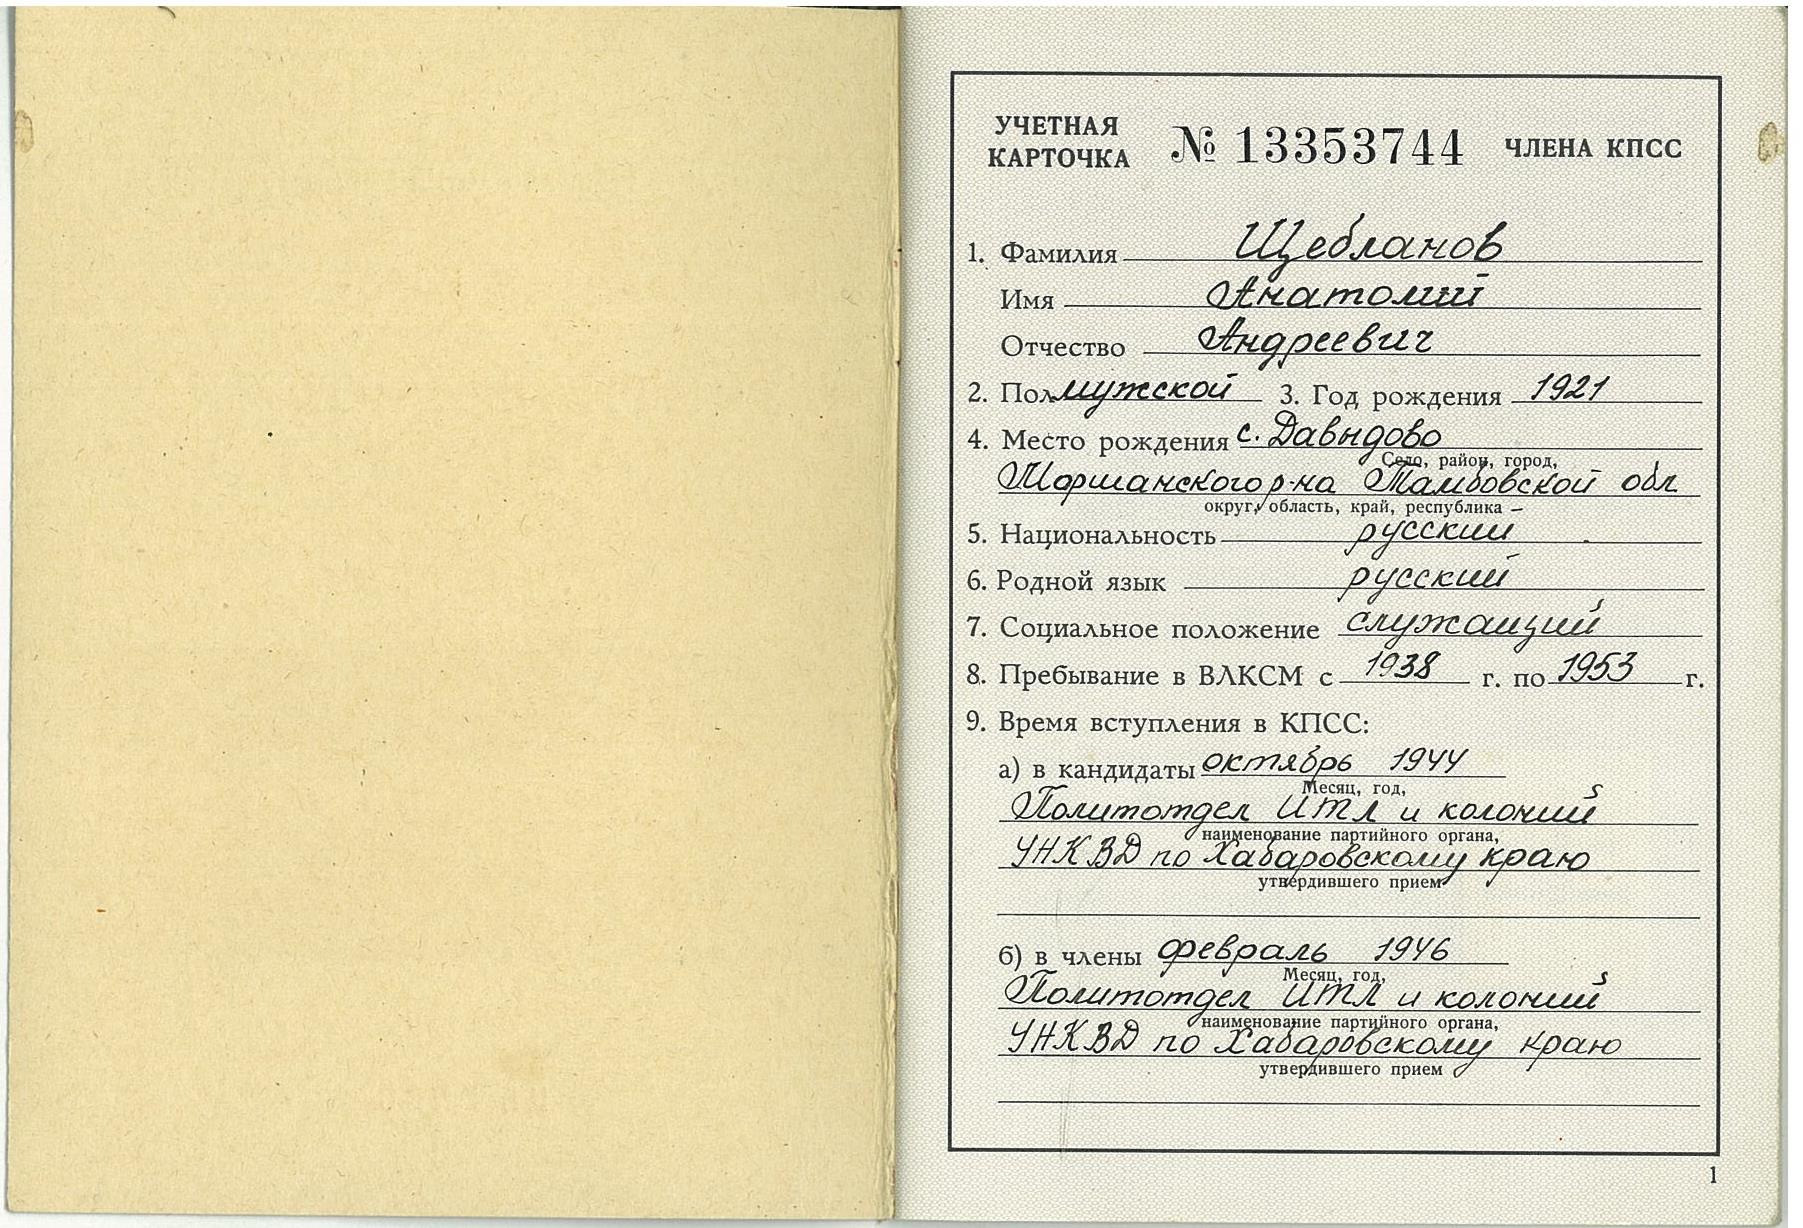 УЧЕТНАЯ КАРТОЧКА № 13353744 ЧЛЕНА КПСС
1. Фамилия Щебланов
Имя Анатолий
Отчество Андреевич
2. Пол мужской 3. Год рождения 1921
4. Место рождения с. Давыдово
Село, район, город,
Моршанского р-на Тамбовской обл
округ, область, край, республика
5. Национальность русский
6. Родной язык русский
7. Социальное положение служащий
8. Пребывание в ВЛКСМ с 1938 г. по 1953 г.
9. Время вступления в КПСС:
а) в кандидаты октябрь 1944
Месяц, год,
Политотдел ИТЛ и колоний
наименование партийного органа,
УНКВД по Хабаровскому краю
утвердившего прием
б) в члены февраль 1946
Месяц, год,
Политотдел ИТЛ и колоний
наименование партийного органа,
УНКВД по Хабаровскому краю
утвердившего прием
1